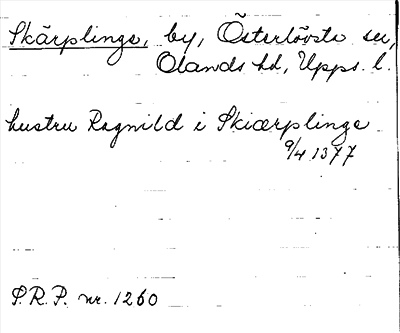 Skärplinge, by, Österlövsta sn,
Olands hd, Upps. l.
hustru Ragnild i Skiærplinge
9/4 1377
S.R.P. nr. 1260